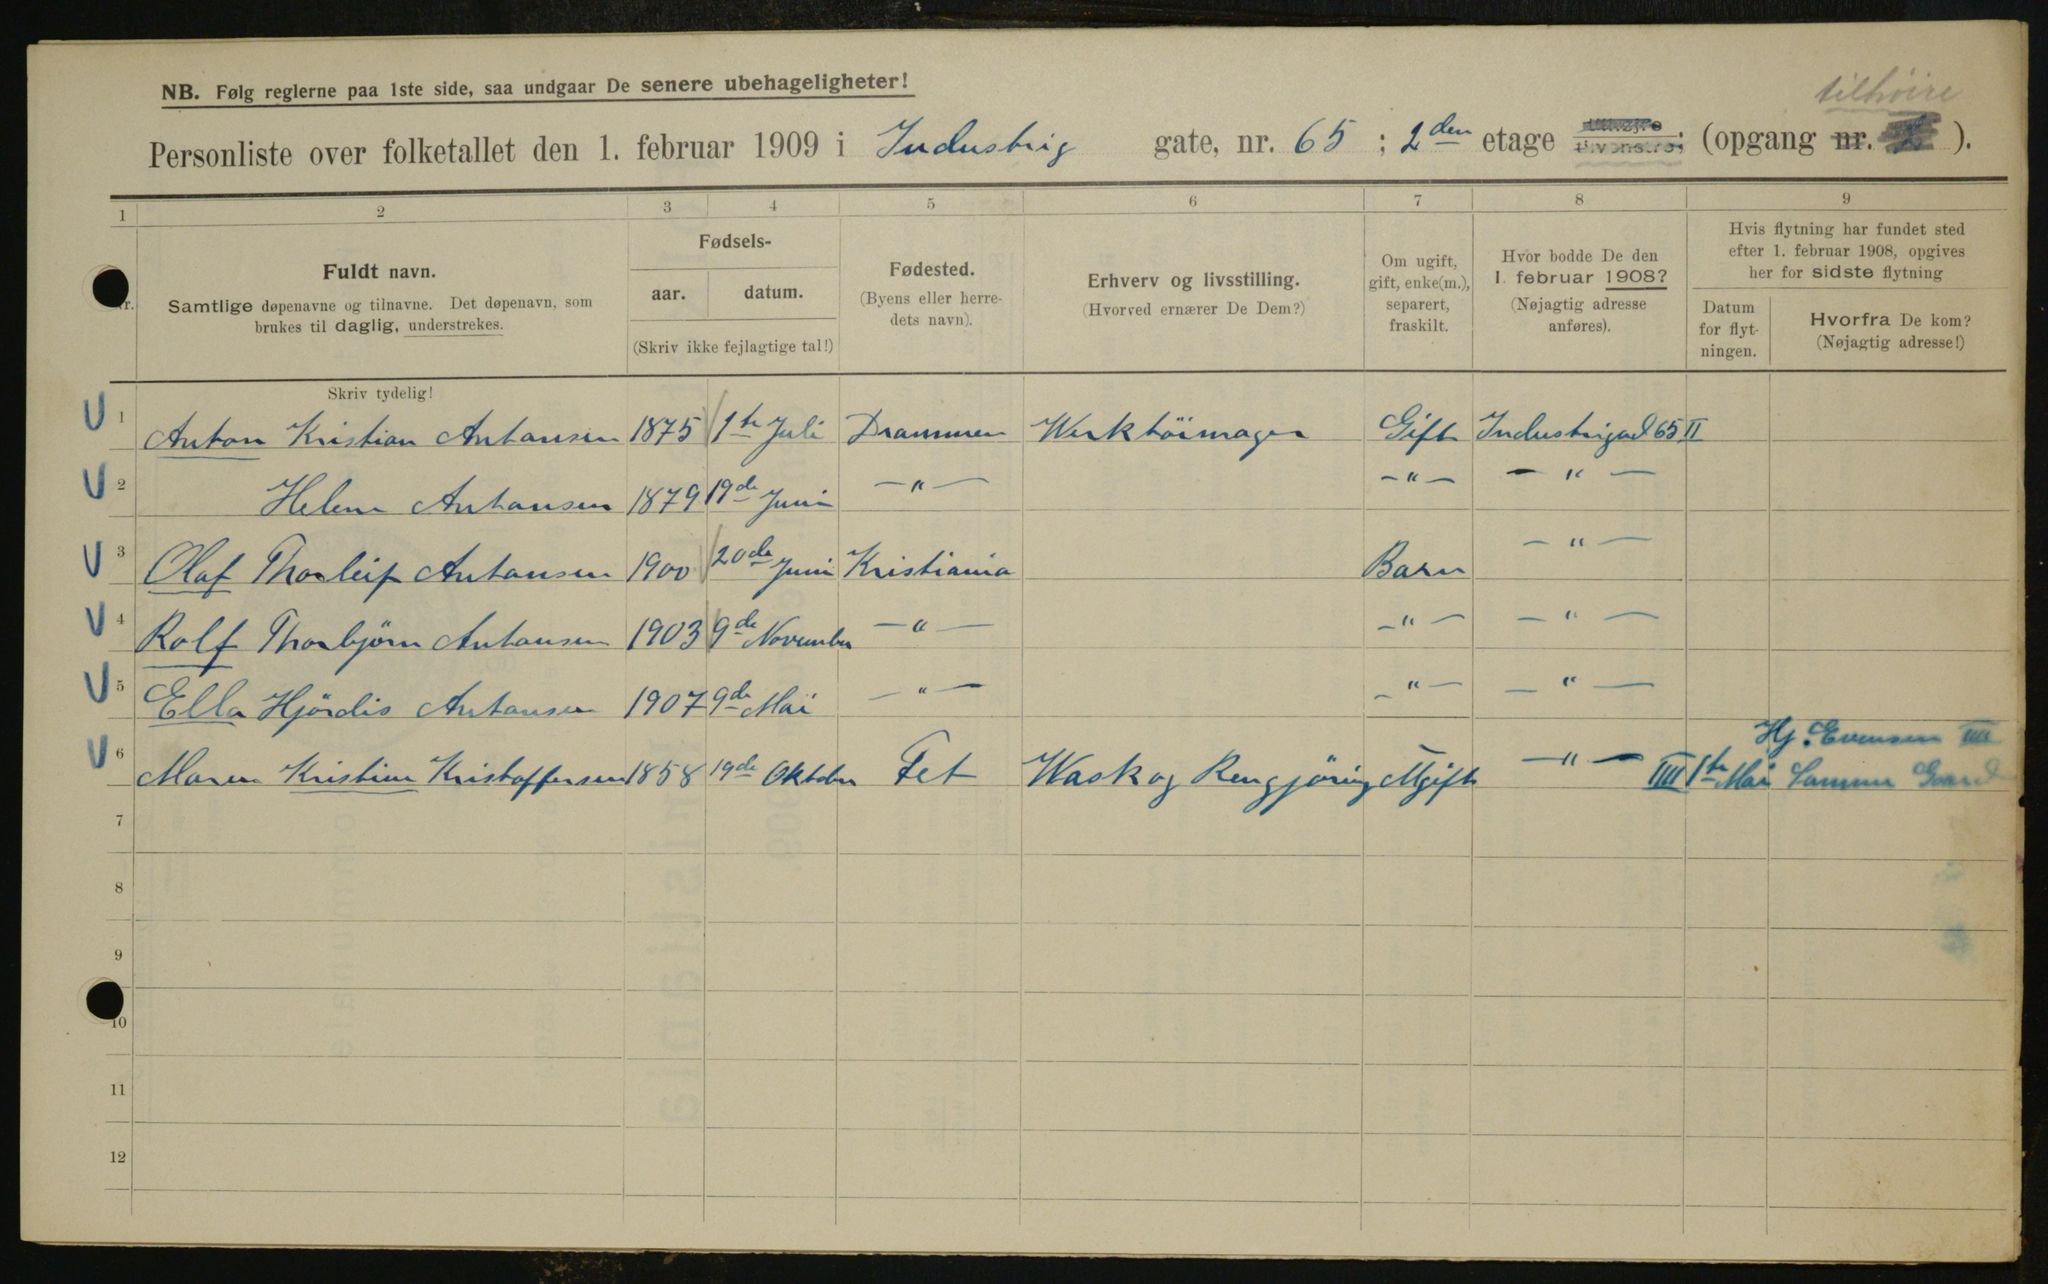 tilhöire
NB. Følg reglerne paa 1ste side, saa undgaar De senere ubehageligheter!
Personliste over folketallet den 1. februar 1909 i Industrig gate, nr. 65 ; 2den etage ; (opgang nr. ).
1 2 3 4 5 6 7 8 9
Fuldt navn.
Samtlige døpenavne og tilnavne. Det døpenavn, som
brukes til daglig, understrekes.
Fødsels-
aar. datum.
(Skriv ikke fejlagtige tal!)
Fødested.
(Byens eller herre-
dets navn).
Erhverv og livsstilling.
(Hvorved ernærer De Dem?)
Om ugift,
gift, enke(m.),
separert,
fraskilt.
Hvor bodde De den
1. februar 1908?
(Nøjagtig adresse
anføres).
Hvis flytning har fundet sted
efter 1. februar 1908, opgives
her for sidste flytning
Datum
for flyt-
ningen.
Hvorfra De kom?
(Nøjagtig adresse!)
Skriv tydelig!
1 Anton Kristian Antonsen 1875 1ste Juli Drammen Werktöimager Gift Industrigad 65 II
2 Helene Antonsen 1879 19de Juni —"— —"— —"—
3 Olaf Thorleif Antonsen 1900 20de Juni Kristiania Barn —"—
4 Rolf Thorbjörn Antonsen 1903 9de November —"— —"— —"—
5 Ella Hjördis Antonsen 1907 9de Mai —"— —"— —"—
Hj. Evensen IIII
6 Maren Kristine Kristoffersen 1858 19de Oktober Fet Wask og Rengjöring Ugift —"— IIII 1ste Mai Samme Gaard
7
8
9
10
11
12